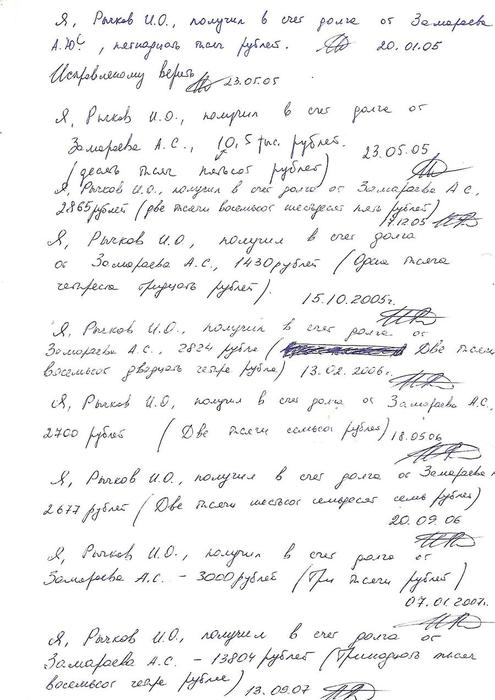 Я, Рычков И.О., получил в счет долга от Замараева
А.Ю., пятнадцать тысяч рублей. 20.01.05
Исправленому верить 23.05.05
Я, Рычков И.О., получил в счет долга от
Замараева А.С., 10,5 тыс. рублей.
(десять тысяч пятьсот рублей) 23.05.05
Я, Рычков И.О., получил в счет долга от Замараева А.С.,
2865 рублей (две тысячи восемьсот шестьдесят пять рублей)
17.12.05
Я, Рычков И.О., получил в счет долга
от Замараева А.С., 1430 рублей (Одна тысяча
четыреста тридцать рублей).
15.10.2005г.
Я, Рычков И.О., получил в счет долга от
Замараева А.С., 2824 рубля ( Две тысячи
восемьсот двадцать четыре рубля) 13.02.2006г.
Я, Рычков И.О., получил в счет долга от Замараева А.С.,
2700 рублей (Две тысячи семьсот рублей) 18.05.06
Я, Рычков И.О., получил в счет долга от Замараева
2677 рублей (Две тысячи шестьсот семьдесят семь рублей)
20.09.06
Я, Рычков И.О., получил в счет долга от
Замараева А.С. - 3000 рублей (Три тысячи рублей)
07.01.2007г.
Я, Рычков И.О., получил в счет долга от
Замараева А.С. - 13804 рублей (Тринадцать тысяч
восемьсот четыре рубля) 13.09.07